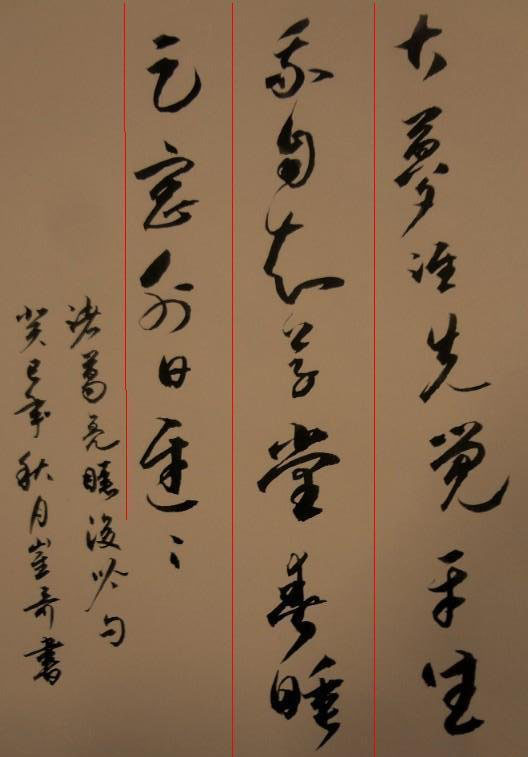 大夢谁先觉平生
我自知草堂春睡
足窗外日遲〻
诸葛亮睡後吟句
癸巳年秋月崔奇書